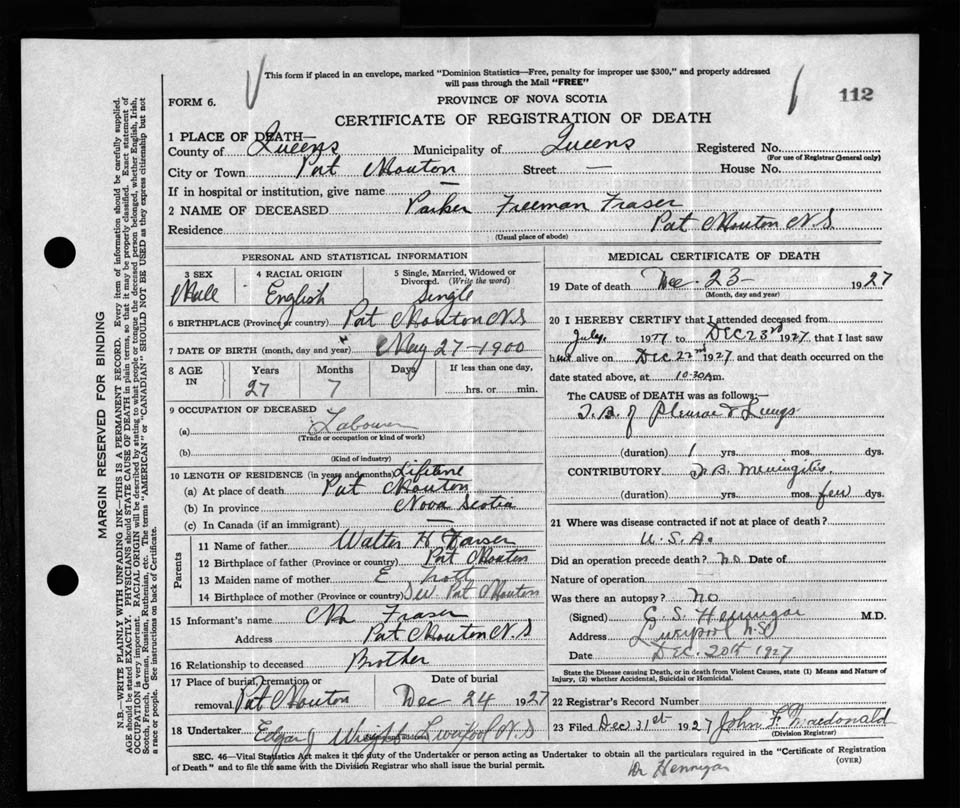 This form if placed in an envelope, marked "Dominion Statistics—Free, penalty for improper use $300," and properly addressed
will pass through the Mail "FREE"
FORM 6.
PROVINCE OF NOVA SCOTIA
112
CERTIFICATE OF REGISTRATION OF DEATH
1 PLACE OF DEATH—
County of Queens Municipality of Queens Registered No.
(For use of Registrar General only)
City or Town Port Mouton Street — House No.
If in hospital or institution, give name —
2 NAME OF DECEASED Parker Freeman Fraser
Residence Port Mouton N.S
(Usual place of abode)
PERSONAL AND STATISTICAL INFORMATION
3 SEX 4 RACIAL ORIGIN 5 Single, Married, Widowed or
Divorced. (Write the word)
Male English Single
6 BIRTHPLACE (Province or country) Port Mouton N.S
7 DATE OF BIRTH (month, day and year) May 27-1900
8 AGE IN Years Months Days If less than one day,
27 7 hrs. or min.
9 OCCUPATION OF DECEASED
(a) Labourer
(Trade or occupation or kind of work)
(b)
(Kind of industry)
10 LENGTH OF RESIDENCE (in years and months) Lifetime
(a) At place of death Port Mouton
(b) In province Nova Scotia
(c) In Canada (if an immigrant) —
Parents
11 Name of father Walter H
12 Birthplace of father (Province or country) Port Mouton
13 Maiden name of mother E
14 Birthplace of mother (Province or country) Port Mouton
15 Informant's name Fraser
Address Port Mouton N.S
16 Relationship to deceased Brother
17 Place of burial, cremation or removal Date of burial
Port Mouton Dec 24 1927
18 Undertaker Edgar J Wright Liverpool N.S
(Name and address)
MEDICAL CERTIFICATE OF DEATH
19 Date of death Dec. 23- 1927
(Month, day and year)
20 I HEREBY CERTIFY that I attended deceased from
July, 1927 to DEC 23rd 1927, that I last saw
him alive on DEC 22nd 1927, and that death occurred on the
date stated above, at 10.30 m.
The CAUSE OF DEATH was as follows:—
T.B. of Pleurae & Lungs
(duration) 1 yrs. mos. dys.
CONTRIBUTORY T.B. Meningitis
(duration) yrs. mos. few dys.
21 Where was disease contracted if not at place of death?
U.S.A.
Did an operation precede death? no Date of
Nature of operation
Was there an autopsy? no
(Signed) M.D.
Address Liverpool N.S.
Date DEC. 20th 1927
State the Disease causing Death, or in death from Violent Causes, state (1) Means and Nature of
Injury, (2) whether Accidental, Suicidal or Homicidal.
22 Registrar's Record Number
23 Filed Dec 31st 1927 John F Macdonald
(Division Registrar)
SEC. 46—Vital Statistics Act makes it the duty of the Undertaker or person acting as Undertaker to obtain all the particulars required in the "Certificate of Registration
of Death" and to file the same with the Division Registrar who shall issue the burial permit.
(OVER)
Dr Hennigar
MARGIN RESERVED FOR BINDING
N.B.—WRITE PLAINLY WITH UNFADING INK—THIS IS A PERMANENT RECORD. Every item of information should be carefully supplied.
AGE should be stated EXACTLY. PHYSICIANS should STATE CAUSE OF DEATH in plain terms, so that it may be properly classified. Exact statement of
OCCUPATION is very important. RACIAL ORIGIN will be described by stating to what people or tongue the deceased person belonged, whether English, Irish,
Scotch, French, German, Russian, Ruthenian, etc. The terms "AMERICAN" or "CANADIAN" SHOULD NOT BE USED as they express citizenship but not
a race or people. See instructions on back of Certificate.